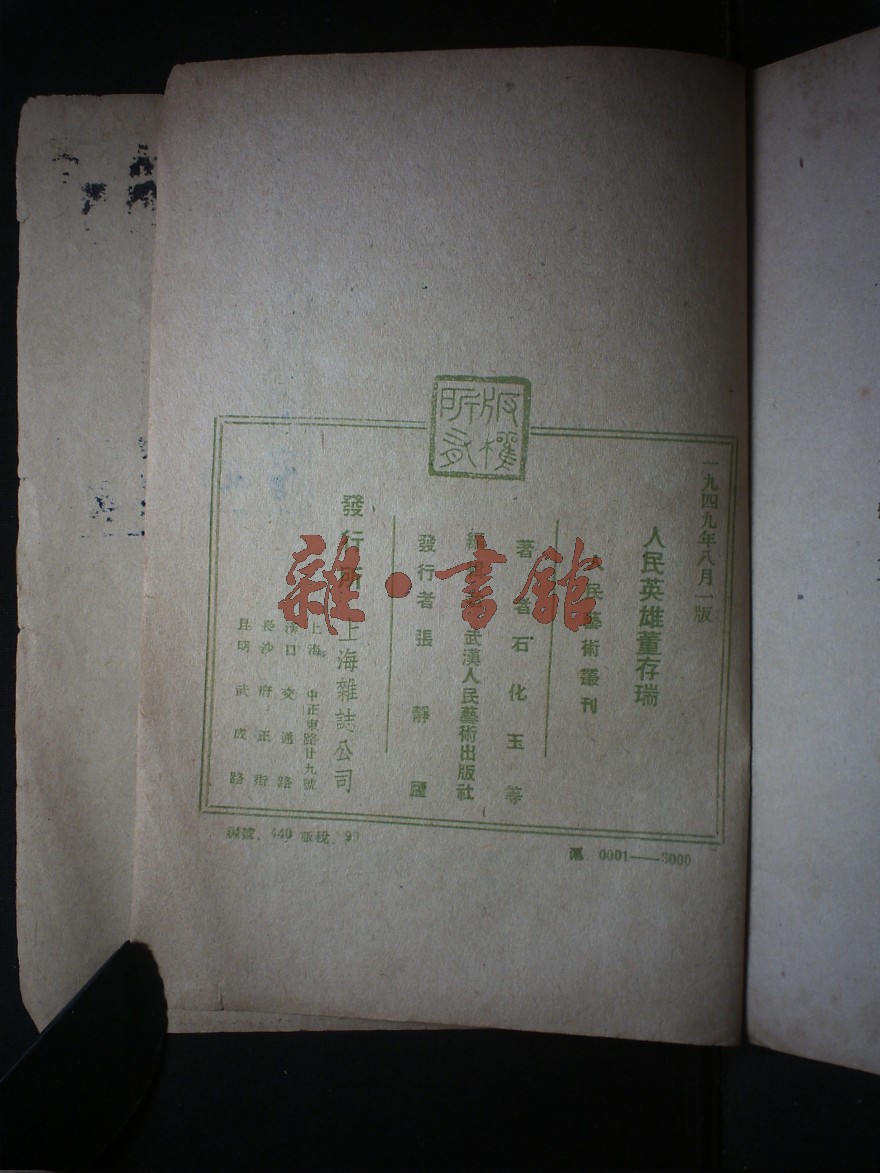 版權
所有
一九四九年八月一版
人民英雄董存瑞
人民藝術叢刊
著者石化玉等
武漢人民藝術出版社
發行者張靜廬
發行所上海雜誌公司
上海 中正東路廿九號
漢口 交通路
長沙 府正街
昆明 武成路
編號．440 版稅．99
滬 0001——3000
雜·書館